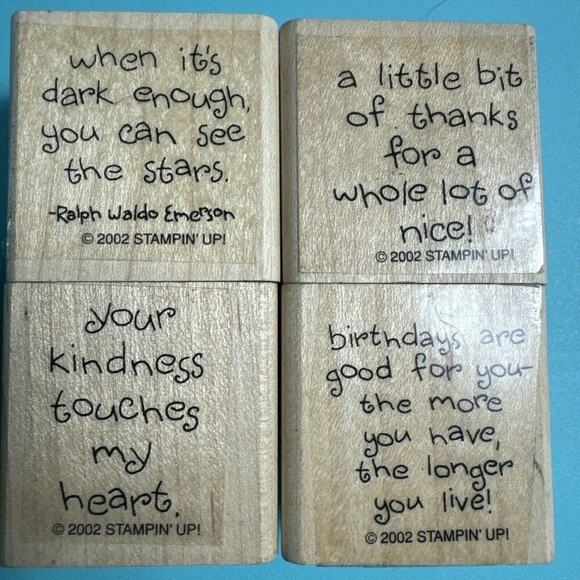 when it's
dark enough,
you can see
the stars.
-Ralph Waldo Emerson
© 2002 STAMPIN' UP!
a little bit
of thanks
for a
whole lot of
nice!
© 2002 STAMPIN' UP!
your
kindness
touches
my
heart.
© 2002 STAMPIN' UP!
birthdays are
good for you-
the more
you have,
the longer
you live!
© 2002 STAMPIN' UP!